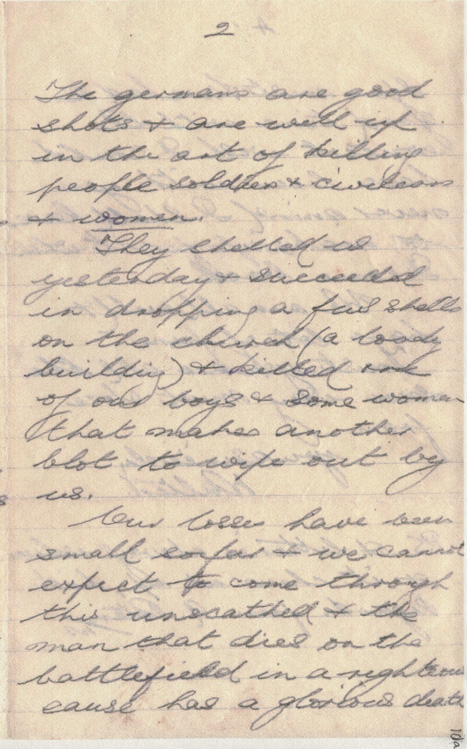 2
The germans are good
shots & are well up
in the art of killing
people soldiers & civilians
& women.
They shelled us
yesterday & succeeded
in dropping a few shells
on the church (a lovely
building) & killed one
of our boys & some women
that makes another
blot to wipe out by
us.
Our losses have been
small so far & we cannot
expect to come through
this unscathed & the
man that dies on the
battlefield in a righteous
cause has a glorious death